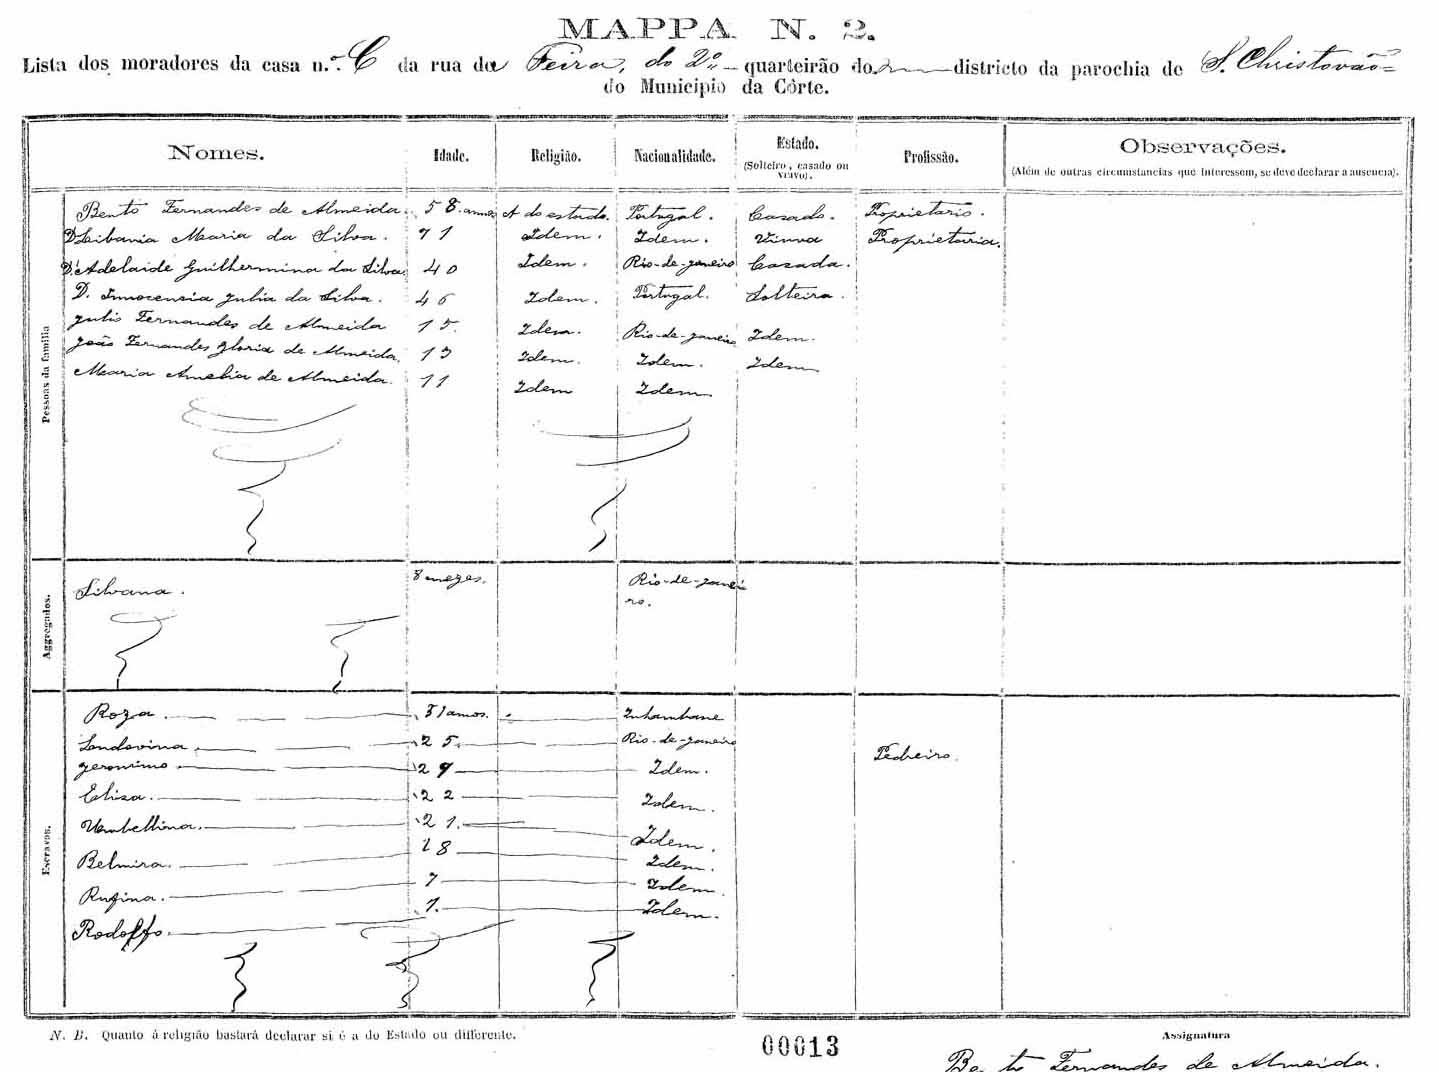 MAPPA N. 2.
Lista dos moradores da casa n.º C da rua da Feira, do 2º quarteirão do districto da parochia de S. Christovão
do Municipio da Côrte.
Nomes. Idade. Religião. Nacionalidade. Estado. (Solteiro, casado ou viuvo). Profissão. Observações. (Além de outras circumstancias que interessem, se deve declarar a ausencia).
Pessoas da familia
Bento Fernandes de Almeida. 58 annos A do estado. Portugal. Casado. Proprietario.
D. Libania Maria da Silva. 71 Idem. Idem. Viuva Proprietaria.
D. Adelaide Guilhermina da Silva. 40 Idem. Rio-de-janeiro Casada.
D. Innocencia Julia da Silva. 46 Idem. Portugal. Solteira.
Julio Fernandes de Almeida 15. Idem. Rio-de-janeiro Idem.
João Fernandes Gloria de Almeida. 13 Idem. Idem. Idem
Maria Amelia de Almeida. 11 Idem Idem.
Aggregados.
Silvana. 8 mezes. Rio-de-janei
ro.
Escravos.
Roza. 51 annos. Inhambane
Landovina 25. Rio-de-janeiro
Jeronimo 29 Idem. Pedreiro.
Eliza. 22 Idem.
Umbellina. 21. Idem.
Belmira. 18 Idem.
Rufina. 7 Idem.
Rodolfo. 7. Idem.
N. B. Quanto á religião bastará declarar si é a do Estado ou differente.
00013
Assignatura
Bento Fernandes de Almeida.